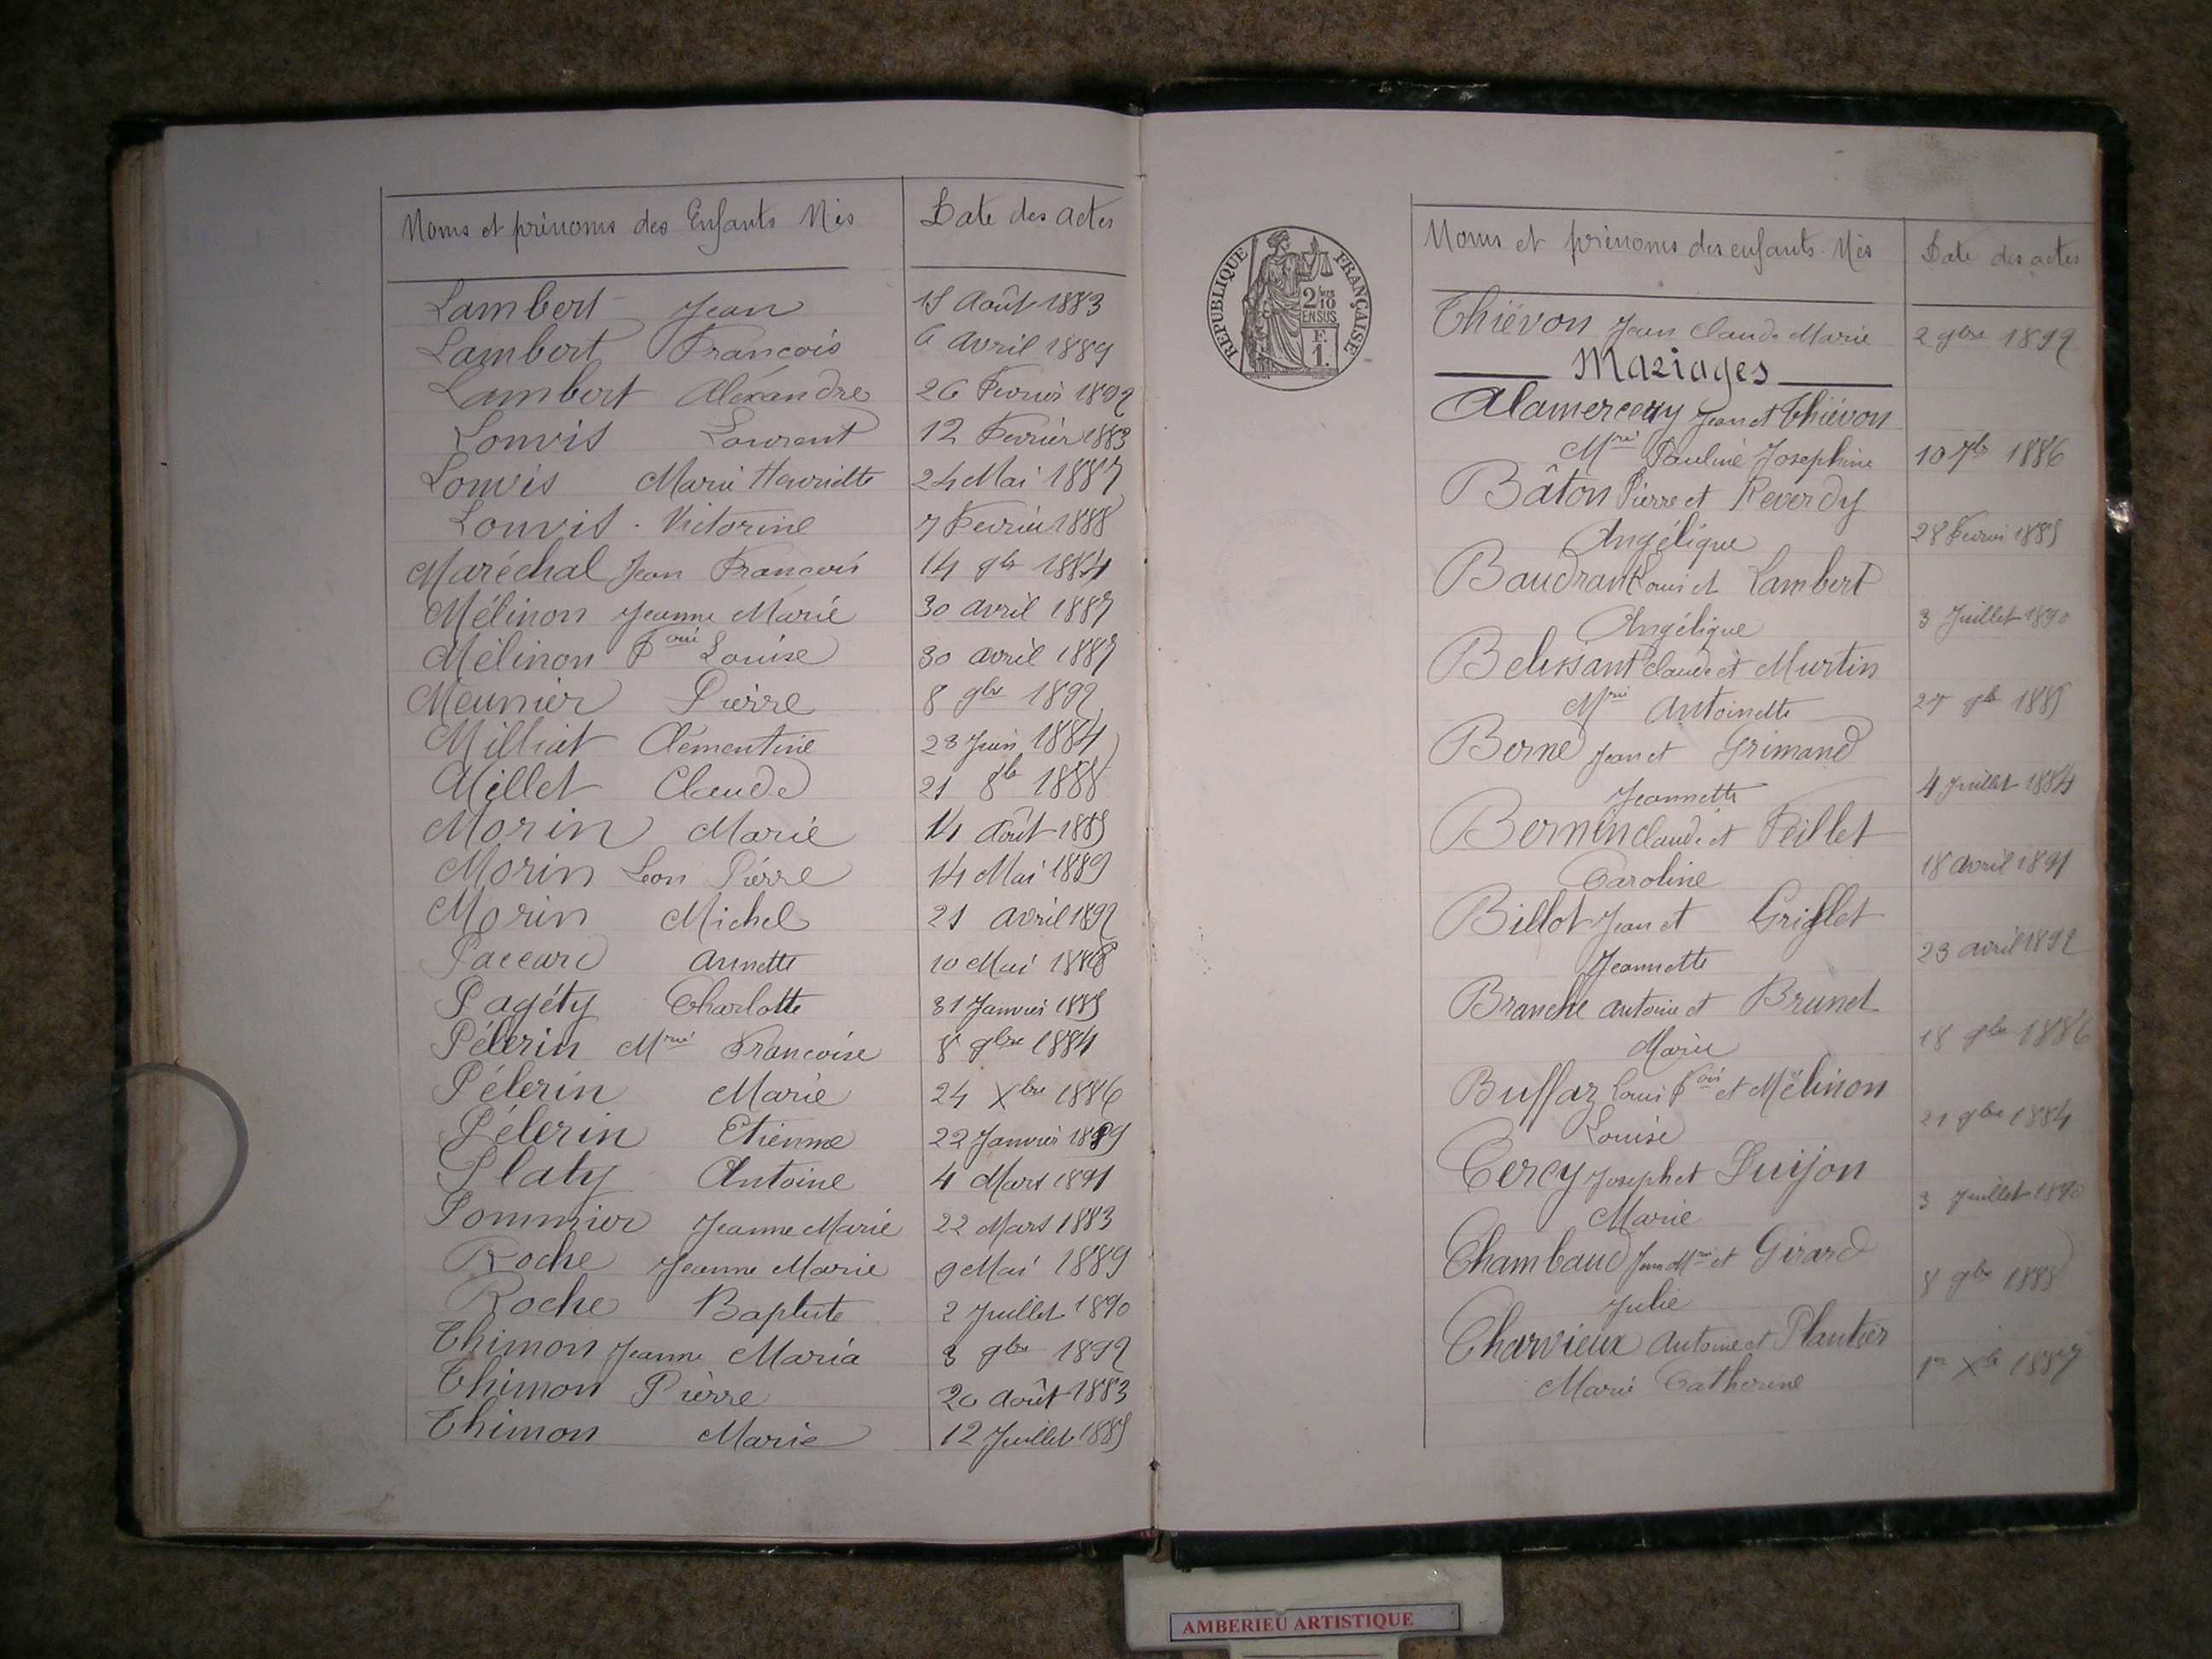 Noms et prénoms des Enfants Nés Date des actes
Lambert Jean 15 Août 1883
Lambert François 6 Avril 1889
Lambert Aléxandre 26 Fevrier 1892
Louvis Laurent 12 Fevrier 1883
Louvis Marie Henriette 24 Mai 1887
Louvis Victorine 7 Fevrier 1888
Maréchal Jean François 14 9bre 1884
Mélinon Jeanne Marie 30 avril 1887
Mélinon Fçoise Louise 30 avril 1887
Meunier Pierre 8 9bre 1892
Milliat Clémentine 23 Juin 1884
Millet Claude 21 8bre 1888
Morin Marie 14 Août 1885
Morin Leon Pierre 14 Mai 1889
Morin Michel 21 avril 1892
Paccard annette 10 Mai 1888
Pagéty Charlotte 31 Janvier 1885
Pélerin Mrie Francoise 8 9bre 1884
Pélerin Marie 24 Xbre 1886
Pélerin Etienne 22 Janvier 1889
Platy Antoine 4 Mars 1891
Pommier Jeanne Marie 22 Mars 1883
Roche Jeanne Marie 9 Mai 1889
Roche Baptiste 2 Juillet 1890
Thimon Jeanne Maria 3 9bre 1892
Thimon Pierre 20 Août 1883
Thimon Marie 12 Juillet 1885
REPUBLIQUE FRANÇAISE
2/10
EN SUS
F.
1.
Noms et prénoms des enfants Nés Date des actes
Thiévon Jean Claude Marie 2 9bre 1892
Mariages
Alamercery Jean et Thiévon
Mrie Pauline Josephine 10 7bre 1886
Bâton Pierre et Reverdy
Angélique 28 Fevrier 1885
Baudrant Louis et Lambert
Angélique 3 Juillet 1890
Belissant Claude et Murtin
Mrie Antoinette 27 9bre 1885
Berne Jean et Grimand
Jeannette 4 Juillet 1884
Bernin Claude et Peillet
Caroline 18 avril 1891
Billot Jean et Griffet
Jeannette 23 avril 1892
Branche Antoine et Brunet
Marie 18 9bre 1886
Buffaz Louis Fçois et Mélinon
Louise 21 9bre 1884
Cercy Joseph et Guijon
Marie 3 Juillet 1890
Chambaud Jean Mrie et Girard
Julie 8 9bre 1888
Charvieux Antoine et Plantier
Marie Catherine 1er Xbre 1887
AMBERIEU ARTISTIQUE